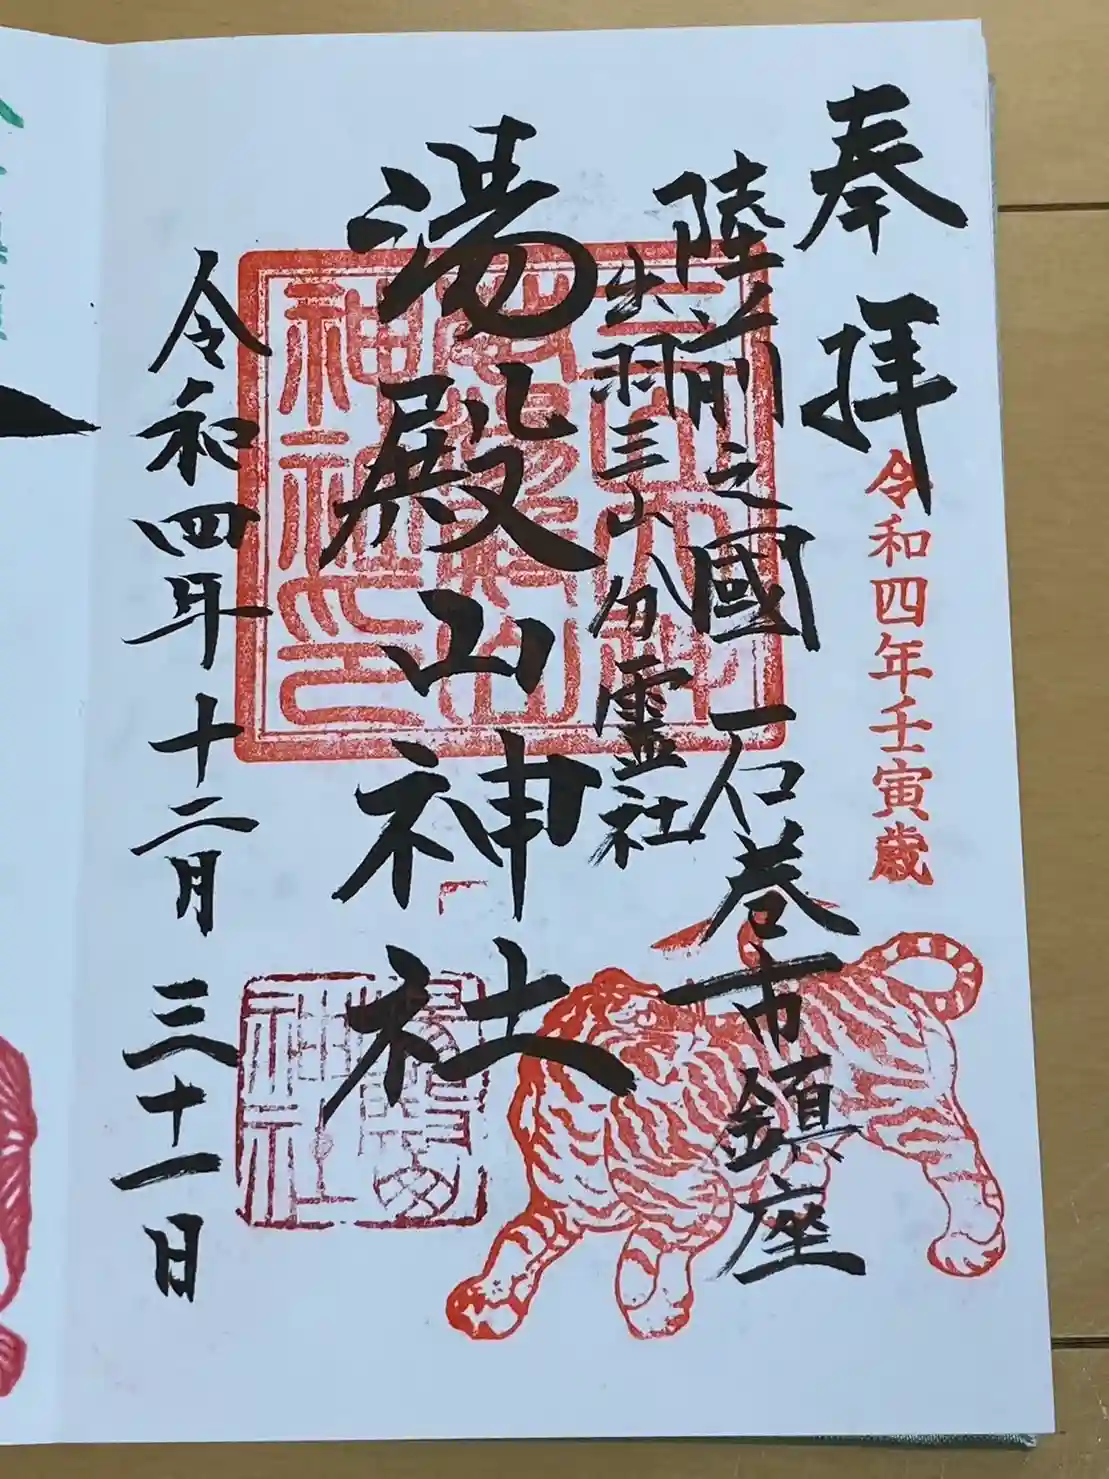 奉拝
令和四年壬寅歳
陸前之國石巻市鎮座
出羽三山分霊社
湯殿山神社
令和四年十二月三十一日